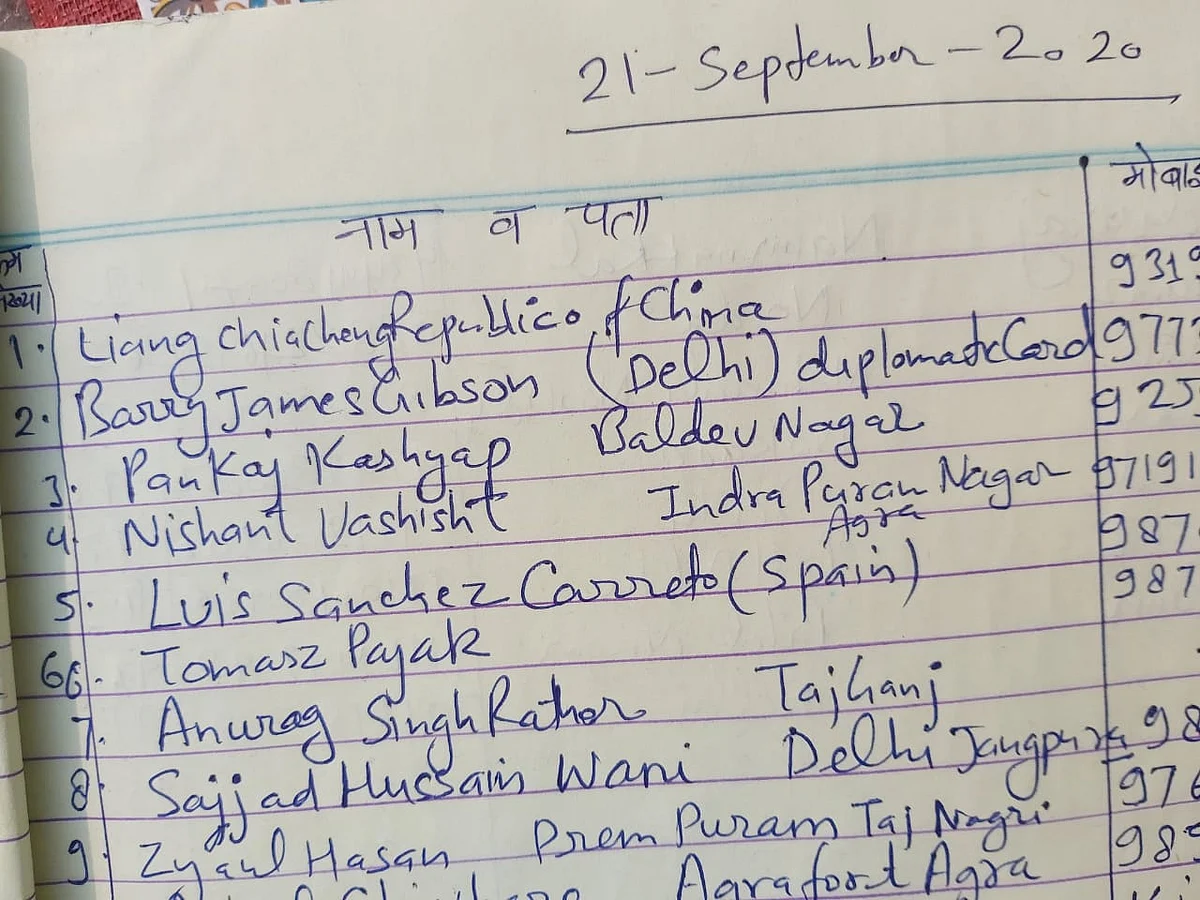 21-September-2020
नाम व पता
मोबाइ
931
1. Liang ChiaCheng Republico of China 977
2. Barry James Gibson (Delhi) diplomatic Card 925
3. Pankaj Kashyap Baldev Nagar
4. Nishant Vashisht Indra Puram Nagar 97191
Agra
5. Luis Sanchez Carreto (Spain) 987
66. Tomasz Pajak 987
7. Anurag Singh Rathor Tajganj
8. Sajjad Hussain Wani Delhi Jangpura 98
9. Zyaul Hasan Prem Puram Taj Nagri 976
Agrafort Agra 98